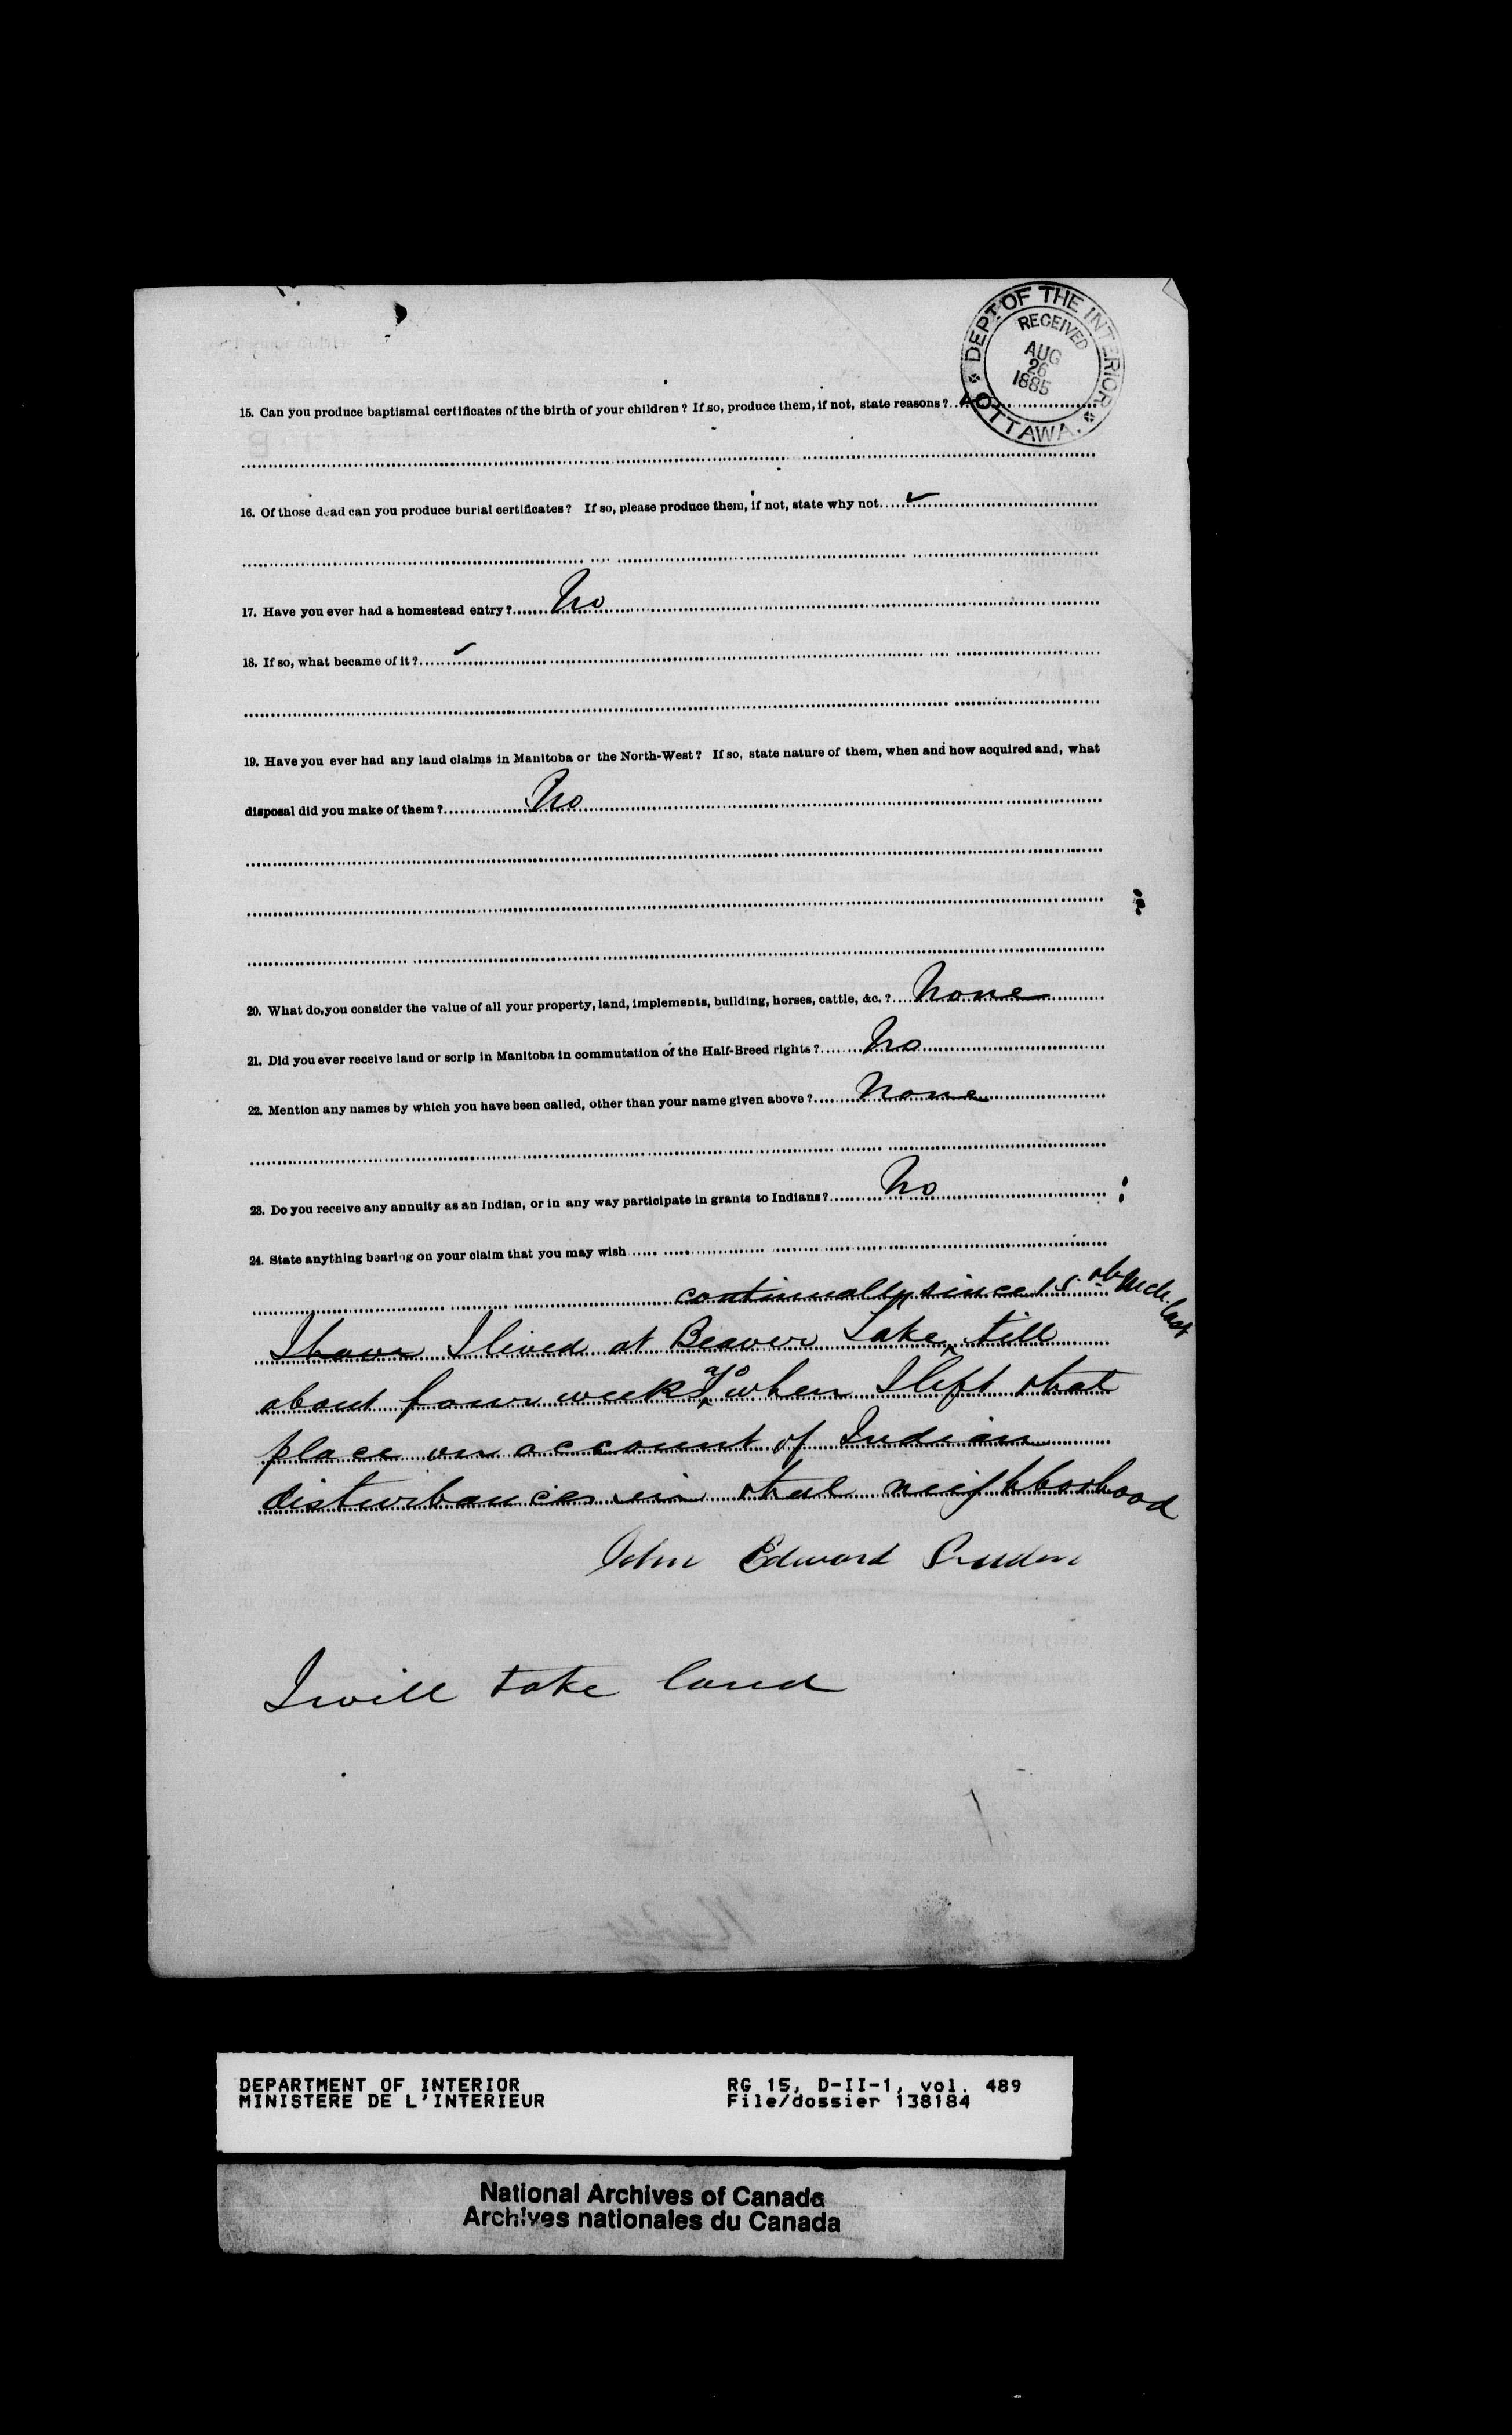 DEPT. OF THE INTERIOR
RECEIVED
AUG
26
1885
OTTAWA.
15. Can you produce baptismal certificates of the birth of your children? If so, produce them, if not, state reasons?
16. Of those dead can you produce burial certificates? If so, please produce them, if not, state why not
17. Have you ever had a homestead entry? No
18. If so, what became of it?
19. Have you ever had any land claims in Manitoba or the North-West? If so, state nature of them, when and how acquired and, what
disposal did you make of them? No
20. What do you consider the value of all your property, land, implements, building, horses, cattle, &c.? None
21. Did you ever receive land or scrip in Manitoba in commutation of the Half-Breed rights? No
22. Mention any names by which you have been called, other than your name given above? None
23. Do you receive any annuity as an Indian, or in any way participate in grants to Indians? No
24. State anything bearing on your claim that you may wish
continually since 15th Mch. last
I have I lived at Beaver Lake till
about four weeks ago when I left that
place on account of Indian
disturbances in that neighborhood
John Edward Pruden
I will take land
DEPARTMENT OF INTERIOR
MINISTERE DE L'INTERIEUR
RG 15, D-II-1, vol. 489
File/dossier 138184
National Archives of Canada
Archives nationales du Canada